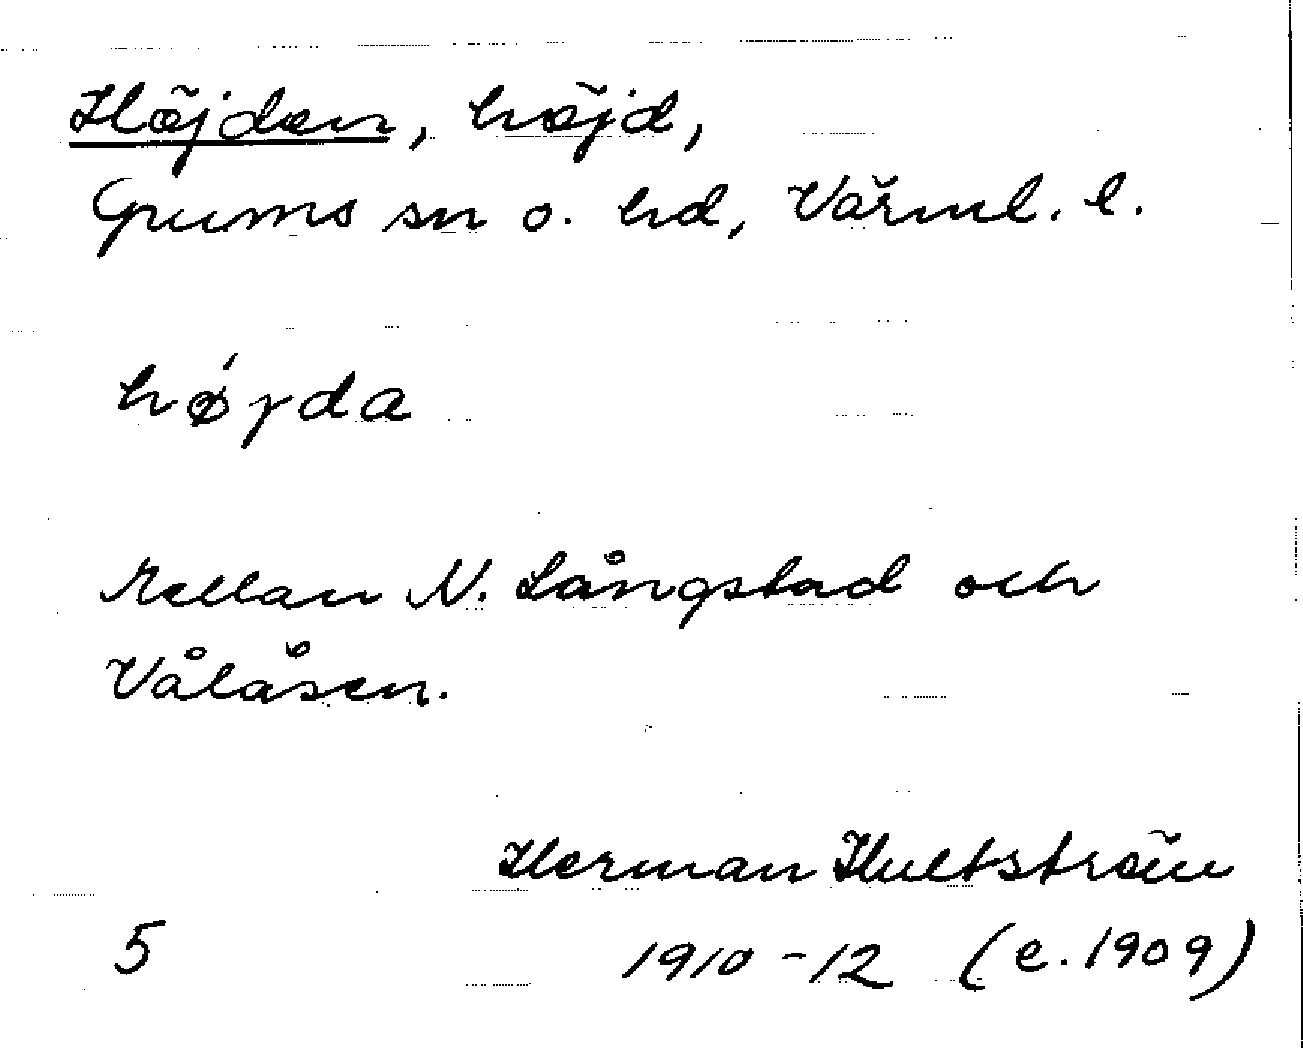 Höjden, höjd,
Grums sn o. hd, Värml. l.
hǿjda
Mellan N. Långstad och
Vålåsen.
Herman Hultström
5 1910-12 (e. 1909)